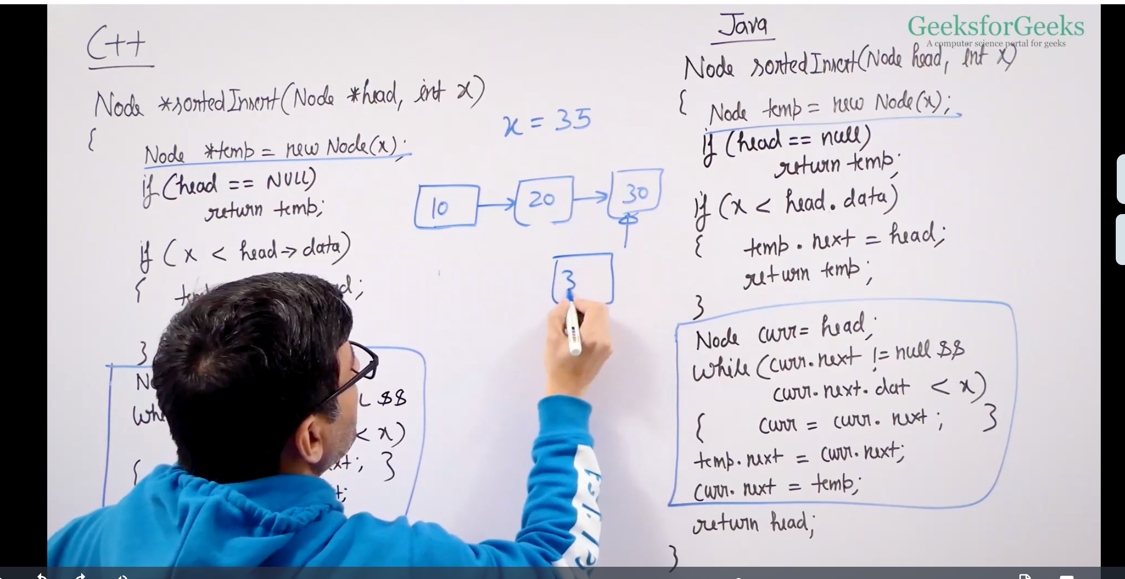 C++
Node *sortedInsert(Node *head, int x)
{
Node *temp = new Node(x);
if (head == NULL)
return temp;
if (x < head→data)
{
}
$$
< x)
{ }
x = 35
10 → 20 → 30
3
Java
GeeksforGeeks
A computer science portal for geeks
Node sortedInsert(Node head, int x)
{
Node temp = new Node(x);
if (head == null)
return temp;
if (x < head.data)
{ temp.next = head;
return temp;
}
Node curr = head;
while (curr.next != null $$
curr.next.dat < x)
{ curr = curr.next; }
temp.next = curr.next;
curr.next = temp;
return head;
}